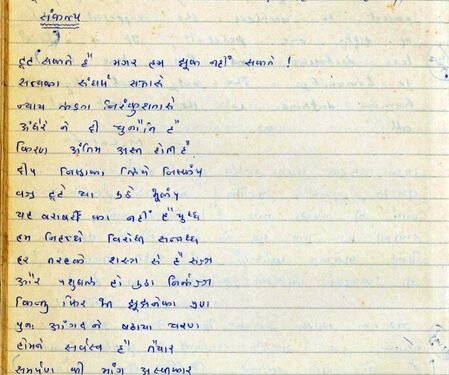 संकल्प
टूट सकते हैं मगर हम झूक नहीं सकते !
सत्यका संघर्ष सत्तासे
न्याय लडता निरंकुशतासे
अंधेरे ने दी चुनौति है
किरण अंतिम अस्त होती है
दीप निष्ठाका लिये निष्कंप
वज्र टूटे या उठे भूकंप
यह बराबरी का नहीं है युध्ध
हम निहत्थे विरोधी सन्नध्ध
हर तरहके शस्त्र से है सज्ज
और पशुबल हो उठा निर्लज्ज
किन्तु फिर भी झूझनेका प्रण
पुनः अंगद ने बढाया चरण
होमने सर्वस्व है तैयार
समर्पण की मांग अस्वीकार